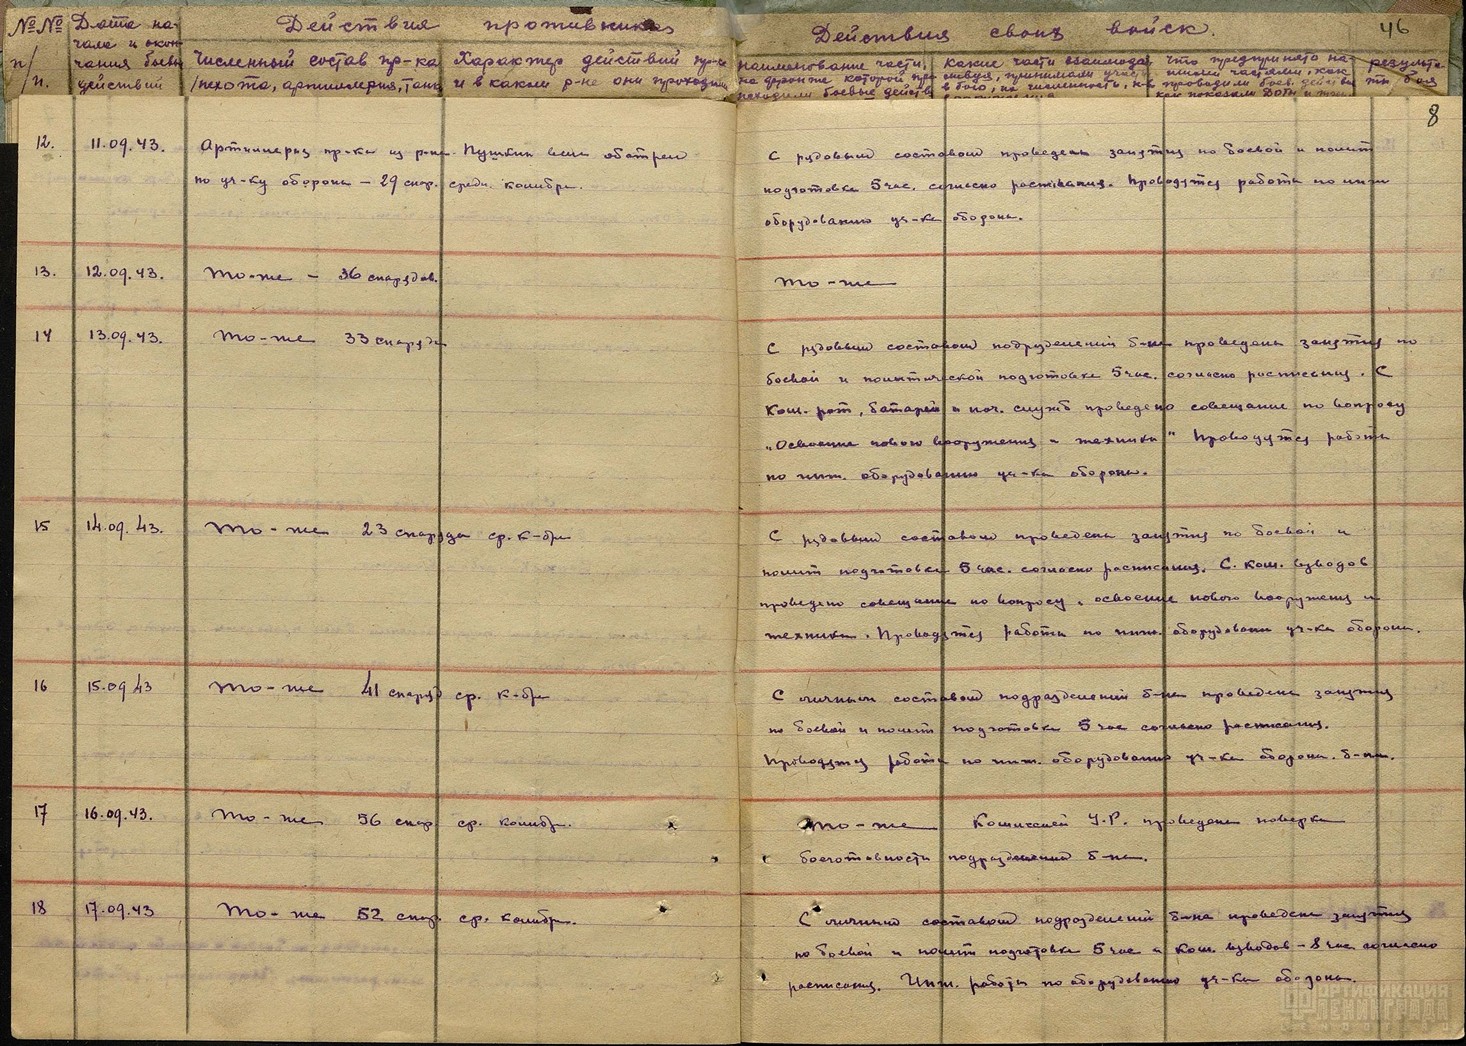 №№ п/п.
Дата начала и окончания боевых действий
Действия противника
Численный состав пр-ка /пехота, артиллерия, танк
Характер действий пр-ка и в каком р-не они проходили
Действия своих войск.
46
наименование части, на фронте которой происходили боевые действ
какие части взаимодействуя, принимали участ в бою, их численность,
что предпринято нашими частями, как проводили боев. действ
результаты боя
8
12. 11.09.43. Артиллерия пр-ка из р-на Пушкин вела обстрел
по уч-ку обороны – 29 снар. средн. калибра.
С рядовым составом проведены занятия по боевой и полит
подготовке 5 час. согласно расписания. Проводятся работы по инж
оборудованию уч-ка обороны.
13. 12.09.43. То-же – 36 снарядов.
То-же
14 13.09.43. То-же 33 снаряда
С рядовым составом подразделений б-на проведены занятия по
боевой и политической подготовке 5 час. согласно расписания. С
Ком. рот, батарей и нач. служб проведено совещание по вопросу
„Освоение нового вооружения и техники" Проводятся работы
по инж. оборудованию уч-ка обороны.
15 14.09.43. То-же 23 снаряда ср. к-бра
С рядовым составом проведены занятия по боевой и
полит подготовке 5 час. согласно расписания. С. ком. взводов
проведено совещание по вопросу, освоение нового вооружения и
техники. Проводятся работы по инж. оборудовани уч-ка обороны.
16 15.09.43 То-же 41 снаряд ср. к-бра
С личным составом подразделений б-на проведены занятия
по боевой и полит подготовке 5 час согласно расписания.
Проводятся работы по инж. оборудованию уч-ка обороны. б-на.
17 16.09.43. То-же 56 снар. ср. калибр.
То-же Комиссией У.Р. проведена поверка
боеготовности подразделений б-на.
18 17.09.43 То-же 52 снар. ср. калибр.
С личным составом подразделений б-на проведены занятия
по боевой и полит подготовке 5 час и ком. взводов – 8 час согласно
расписания. Инж. работы по оборудованию уч-ка обороны.
ФОРТИФИКАЦИЯ
ЛЕНИНГРАДА